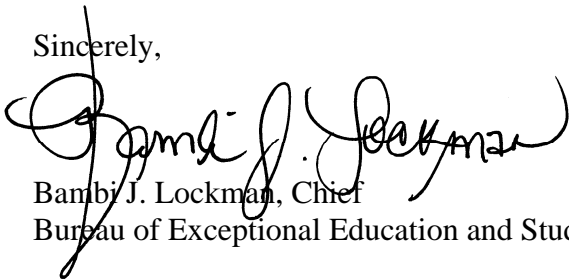 Sincerely,
Bambi J. Lockman
Bambi J. Lockman, Chief
Bureau of Exceptional Education and